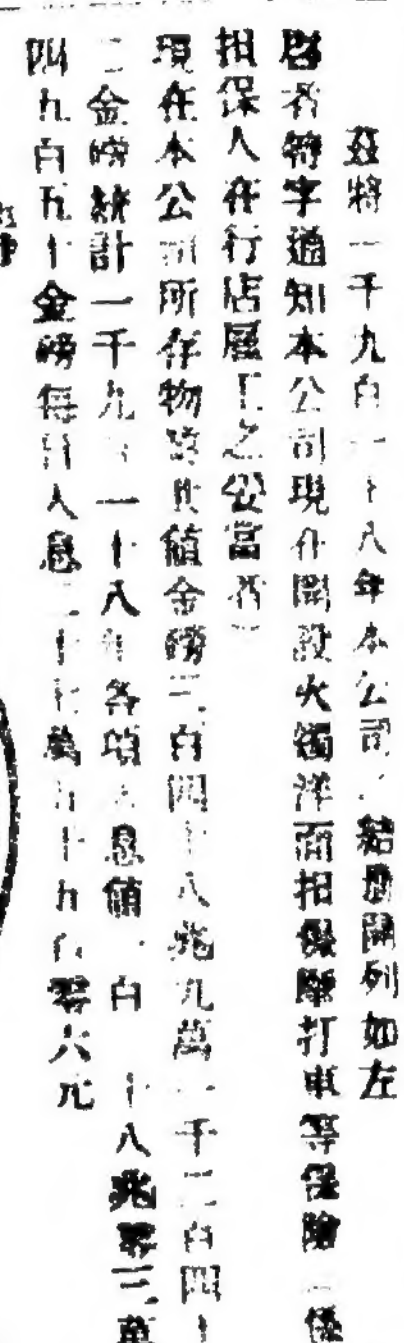 茲將一千九百一十八年本公司之結册開列如左
啓者特字通知本公司現在開設火燭洋面担保摩打車等保險
担保人在行店屋上之妥當者
現在本公司所存物業共值金磅三百四十八兆九萬一千二百四十
二金磅統計一千九百一十八年各項入息值 百 十八兆零三萬
四九百五十金磅每日入息二十 萬五十九百零六元